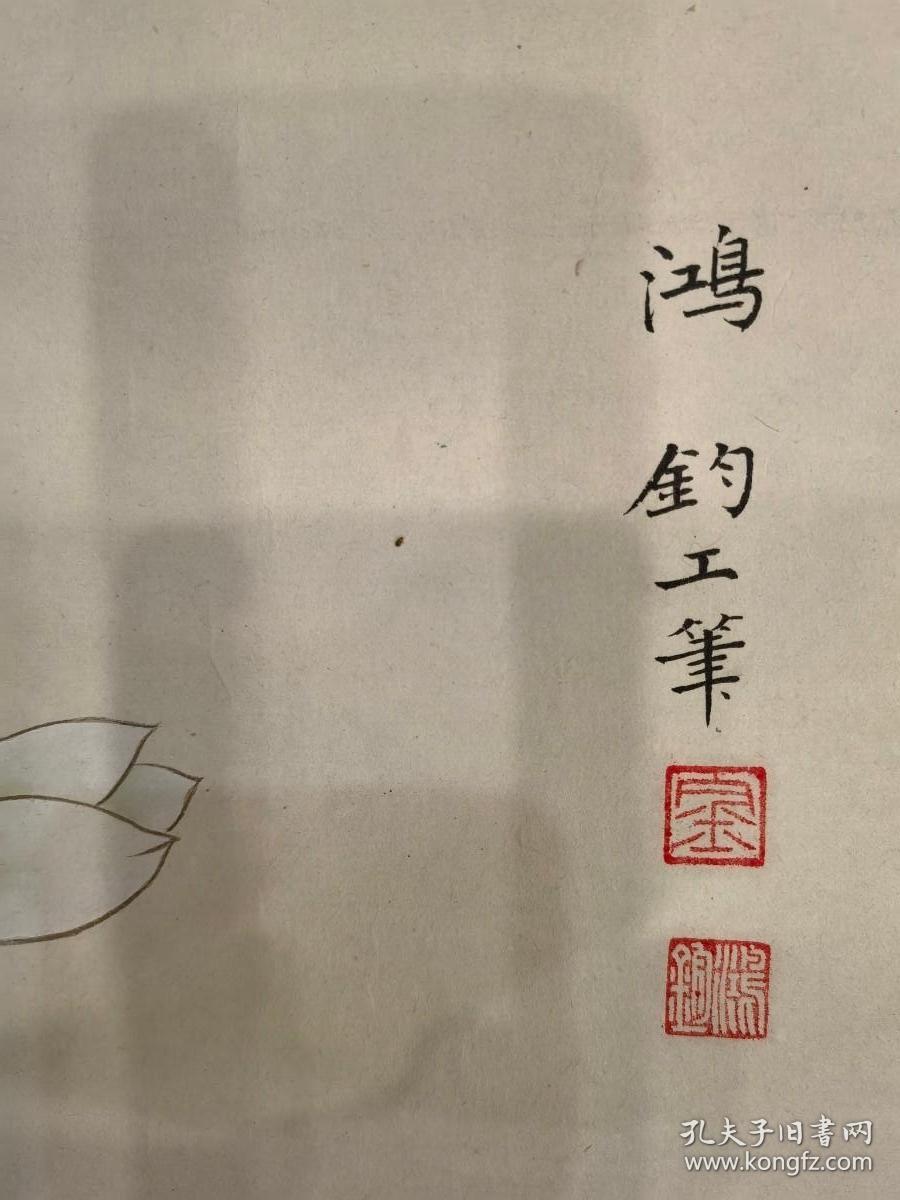 鴻鈞工筆
鴻鈞
孔夫子旧書网
www.kongfz.com